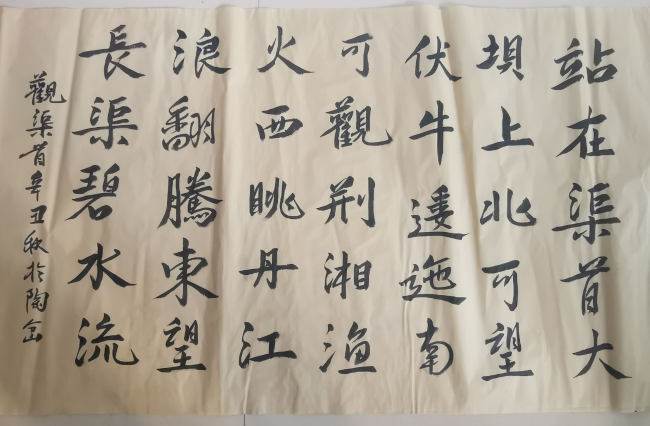 站在渠首大
坝上北可望
伏牛逶迤南
可觀荆湘漁
火西眺丹江
浪翻騰東望
長渠碧水流
觀渠首辛丑秋於陶岔